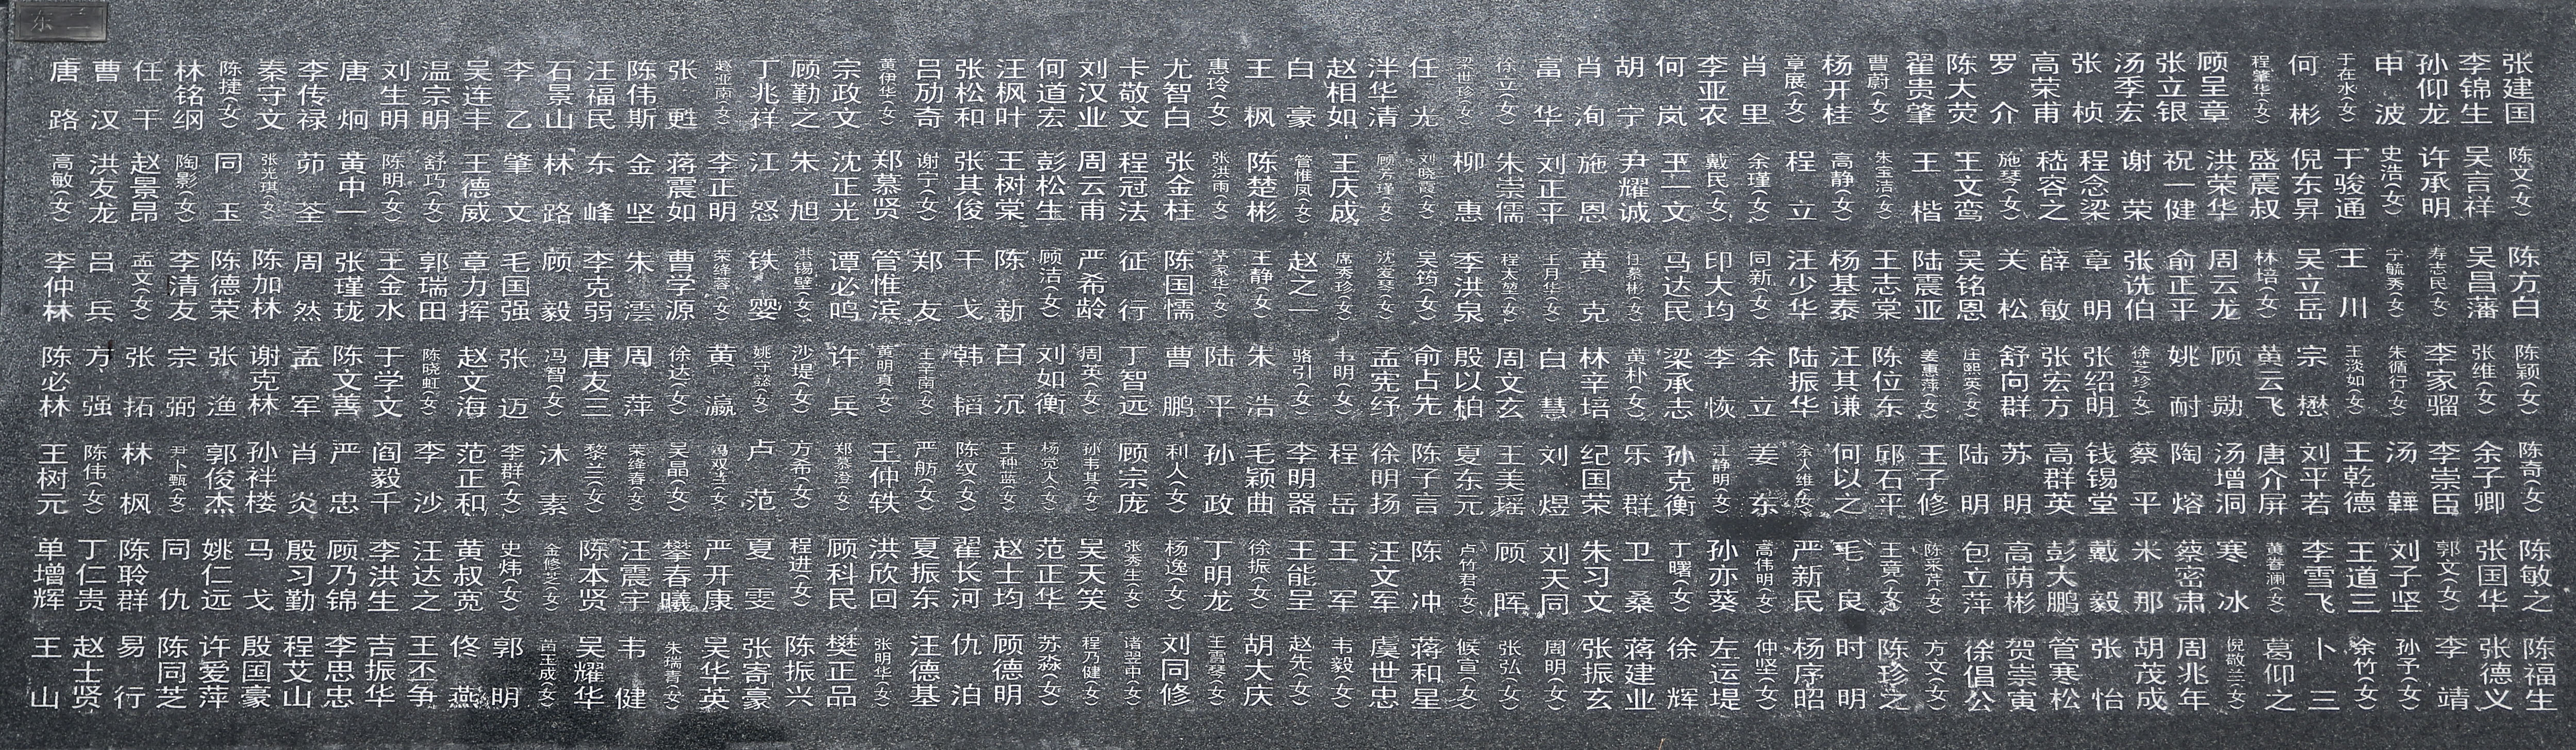 东三
唐路 曹汉 任干 林铭纲 陈捷(女) 秦守文 李传禄 唐炯 刘生明 温宗明 吴连丰 李乙 石景山 汪福民 陈伟斯 张甦 赵亚南(女) 丁兆祥 顾勤之 宗政文 黄伊华(女) 吕励奇 张松和 汪枫叶 何道宏 刘汉业 卡敬文 尤智白 惠玲(女) 王枫 白豪 赵相如 泮华清 任光 梁世珍(女) 徐立(女) 富华 肖洵 胡宁 何岚 李亚农 肖里 章展(女) 杨开桂 曹蔚(女) 翟贵肇 陈大荧 罗介 高荣甫 张桢 汤季宏 张立银 顾呈章 程肇华(女) 何彬 于在水(女) 申波 孙仰龙 李锦生 张建国
高敏(女) 洪友龙 赵景昂 陶影(女) 同玉 张光琪(女) 茆荃 黄中一 陈明(女) 舒巧(女) 王德威 肇文 林路 东峰 金坚 蒋震如 李正明 江怒 朱旭 沈正光 郑慕贤 谢宁(女) 张其俊 王树棠 彭松生 周云甫 程冠法 张金柱 张洪雨(女) 陈楚彬 管惟凤(女) 王庆成 顾方瑾(女) 刘晓霞(女) 柳惠 朱崇儒 刘正平 施恩 尹耀诚 王一文 戴民(女) 余瑾(女) 程立 高静(女) 朱宝洁(女) 王楷 王文鸾 施琴(女) 嵇容之 程念梁 谢荣 祝一健 洪荣华 盛震叔 倪东昇 于骏通 史浩(女) 许承明 吴言祥 陈文(女)
李仲林 吕兵 孟文(女) 李清友 陈德荣 陈加林 周然 张瑾珑 王金水 郭瑞田 章力挥 毛国强 顾毅 李克弱 朱澐 曹学源 荣绛蓉(女) 铁婴 洪锡璧(女) 谭必鸣 管惟滨 郑友 干戈 陈新 顾洁(女) 严希龄 征行 陈国懦 茅家华(女) 王静(女) 赵之一 席秀珍(女) 沈爱琴(女) 吴筠(女) 李洪泉 程太堃(女) 王月华(女) 黄克 马达民 印大均 同新(女) 汪少华 杨基泰 王志棠 陆震亚 吴铭恩 关松 薛敏 章明 张诜伯 俞正平 周云龙 林培(女) 吴立岳 王川 宁毓秀(女) 寿志民(女) 吴昌藩 陈方白
陈必林 方强 张拓 宗弼 张渔 谢克林 孟军 陈文善 于学文 陈晓虹(女) 赵文海 张迈 冯智(女) 唐友三 周萍 徐达(女) 黄瀛 姚守懿(女) 沙堤(女) 许兵 黄明真(女) 王辛南(女) 韩韬 白沉 刘如衡 周英(女) 丁智远 曹鹏 陆平 朱浩 骆引(女) 韦明(女) 孟宪纾 俞占先 殷以柏 周文玄 白慧 林辛培 黄朴(女) 梁承志 李恢 余立 陆振华 汪其谦 陈位东 姜惠萍(女) 庄熙英(女) 舒向群 张宏方 张绍明 徐芝珍(女) 姚耐 顾勋 黄云飞 宗懋 王淡如(女) 朱循行(女) 李家骝 张维(女) 陈颖(女)
王树元 陈伟(女) 林枫 尹卜甄(女) 郭俊杰 孙祥楼 肖炎 严忠 阎毅千 李沙 范正和 李群(女) 沐素 黎兰(女) 荣绛春(女) 吴晶(女) 冯双兰(女) 卢范 方希(女) 郑慕澄(女) 王仲轶 严舫(女) 陈纹(女) 王种蓝(女) 杨觉人(女) 孙韦其(女) 顾宗庞 利人(女) 孙政 毛颖曲 李明器 程岳 徐明扬 陈子言 夏东元 王美瑶 刘煜 纪国荣 乐群 孙克衡 江静明(女) 姜东 余人维(女) 何以之 邱石平 王子修 陆明 苏明 高群英 钱锡堂 蔡平 陶熔 汤增洞 唐介屏 刘平若 王乾德 汤韡 李崇臣 余子卿 陈奇(女)
单增辉 丁仁贵 陈聆群 同仇 姚仁远 马戈 殷习勤 顾乃锦 李洪生 汪达之 黄叔宽 史炜(女) 金修芝(女) 陈本贤 汪震宇 攀春曦 严开康 夏雯 程进(女) 顾科民 洪欣回 夏振东 翟长河 赵士均 范正华 吴天笑 张秀生(女) 杨逸(女) 丁明龙 徐振(女) 王能呈 王军 汪文军 陈冲 卢竹君(女) 顾晖 刘天同 朱习文 卫桑 丁曙(女) 孙亦葵 高伟明(女) 严新民 毛良 王竟(女) 陈采芹(女) 包立萍 高荫彬 彭大鹏 戴毅 米那 蔡密肃 寒冰 黄春澜(女) 李雪飞 王道三 刘子坚 郭文(女) 张国华 陈敏之
王山 赵士贤 易行 陈同芝 许爱萍 殷国豪 程艾山 李思忠 吉振华 王丕争 佟燕 郭明 苗玉成(女) 吴耀华 韦健 朱瑞青(女) 吴华英 张寄豪 陈振兴 樊正品 张明华(女) 汪德基 仇泊 顾德明 苏淼(女) 程乃健(女) 诸翌中(女) 刘同修 王雪琴(女) 胡大庆 赵先(女) 韦毅(女) 虞世忠 蒋和星 候宣(女) 张弘(女) 周明(女) 张振玄 蒋建业 徐辉 左运堤 仲坚(女) 杨序昭 时明 陈珍之 方文(女) 徐倡公 贺崇寅 管寒松 张怡 胡茂成 周兆年 倪敬兰(女) 葛仰之 卜三 余竹(女) 孙予(女) 李靖 张德义 陈福生